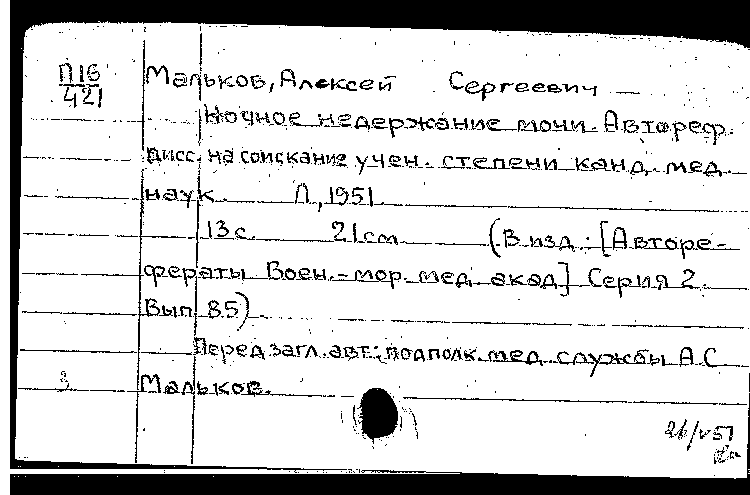 П16
421
Мальков, Алексей Сергеевич
Ночное недержание мочи. Автореф.
дисс. на соискание учен. степени канд. мед.
наук. Л, 1951
13 с. 21 см (В изд.: [Авторе-
фераты Воен.-мор. мед. акад] Серия 2.
Вып 85)
Перед загл. авт.: подполк. мед. службы А С
3 Мальков.
26/V 51